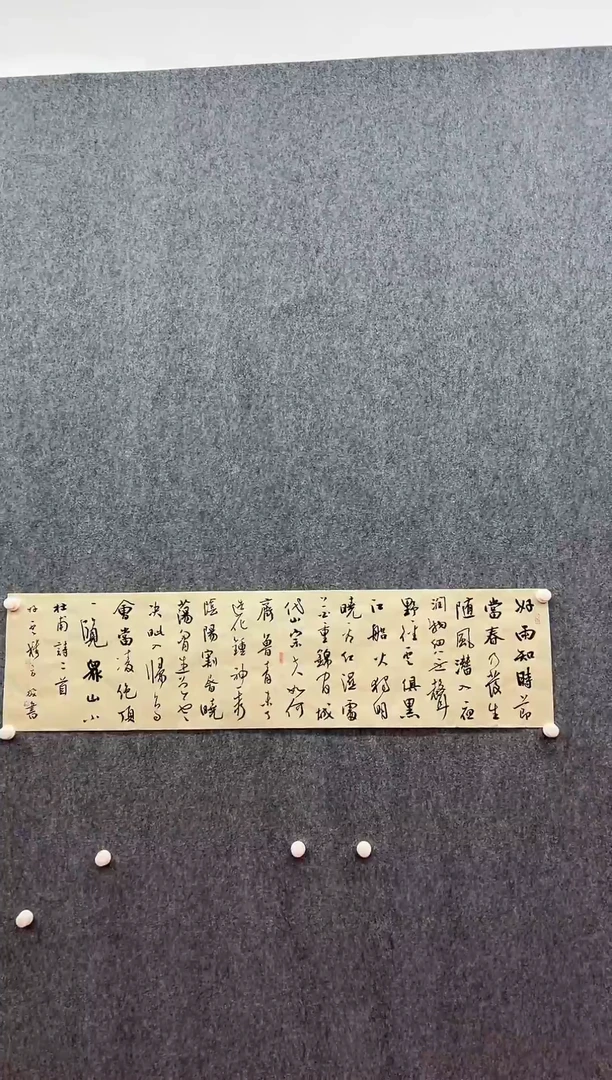 好雨知時節
當春乃發生
随風潛入夜
潤物細無聲
野徑雲俱黑
江船火獨明
曉看紅濕處
花重錦官城
岱宗夫如何
齊魯青未了
造化鍾神秀
陰陽割昏曉
蕩胸生曾雲
决眥入歸鳥
會當凌絕頂
一覽衆山小
杜甫詩二首
書